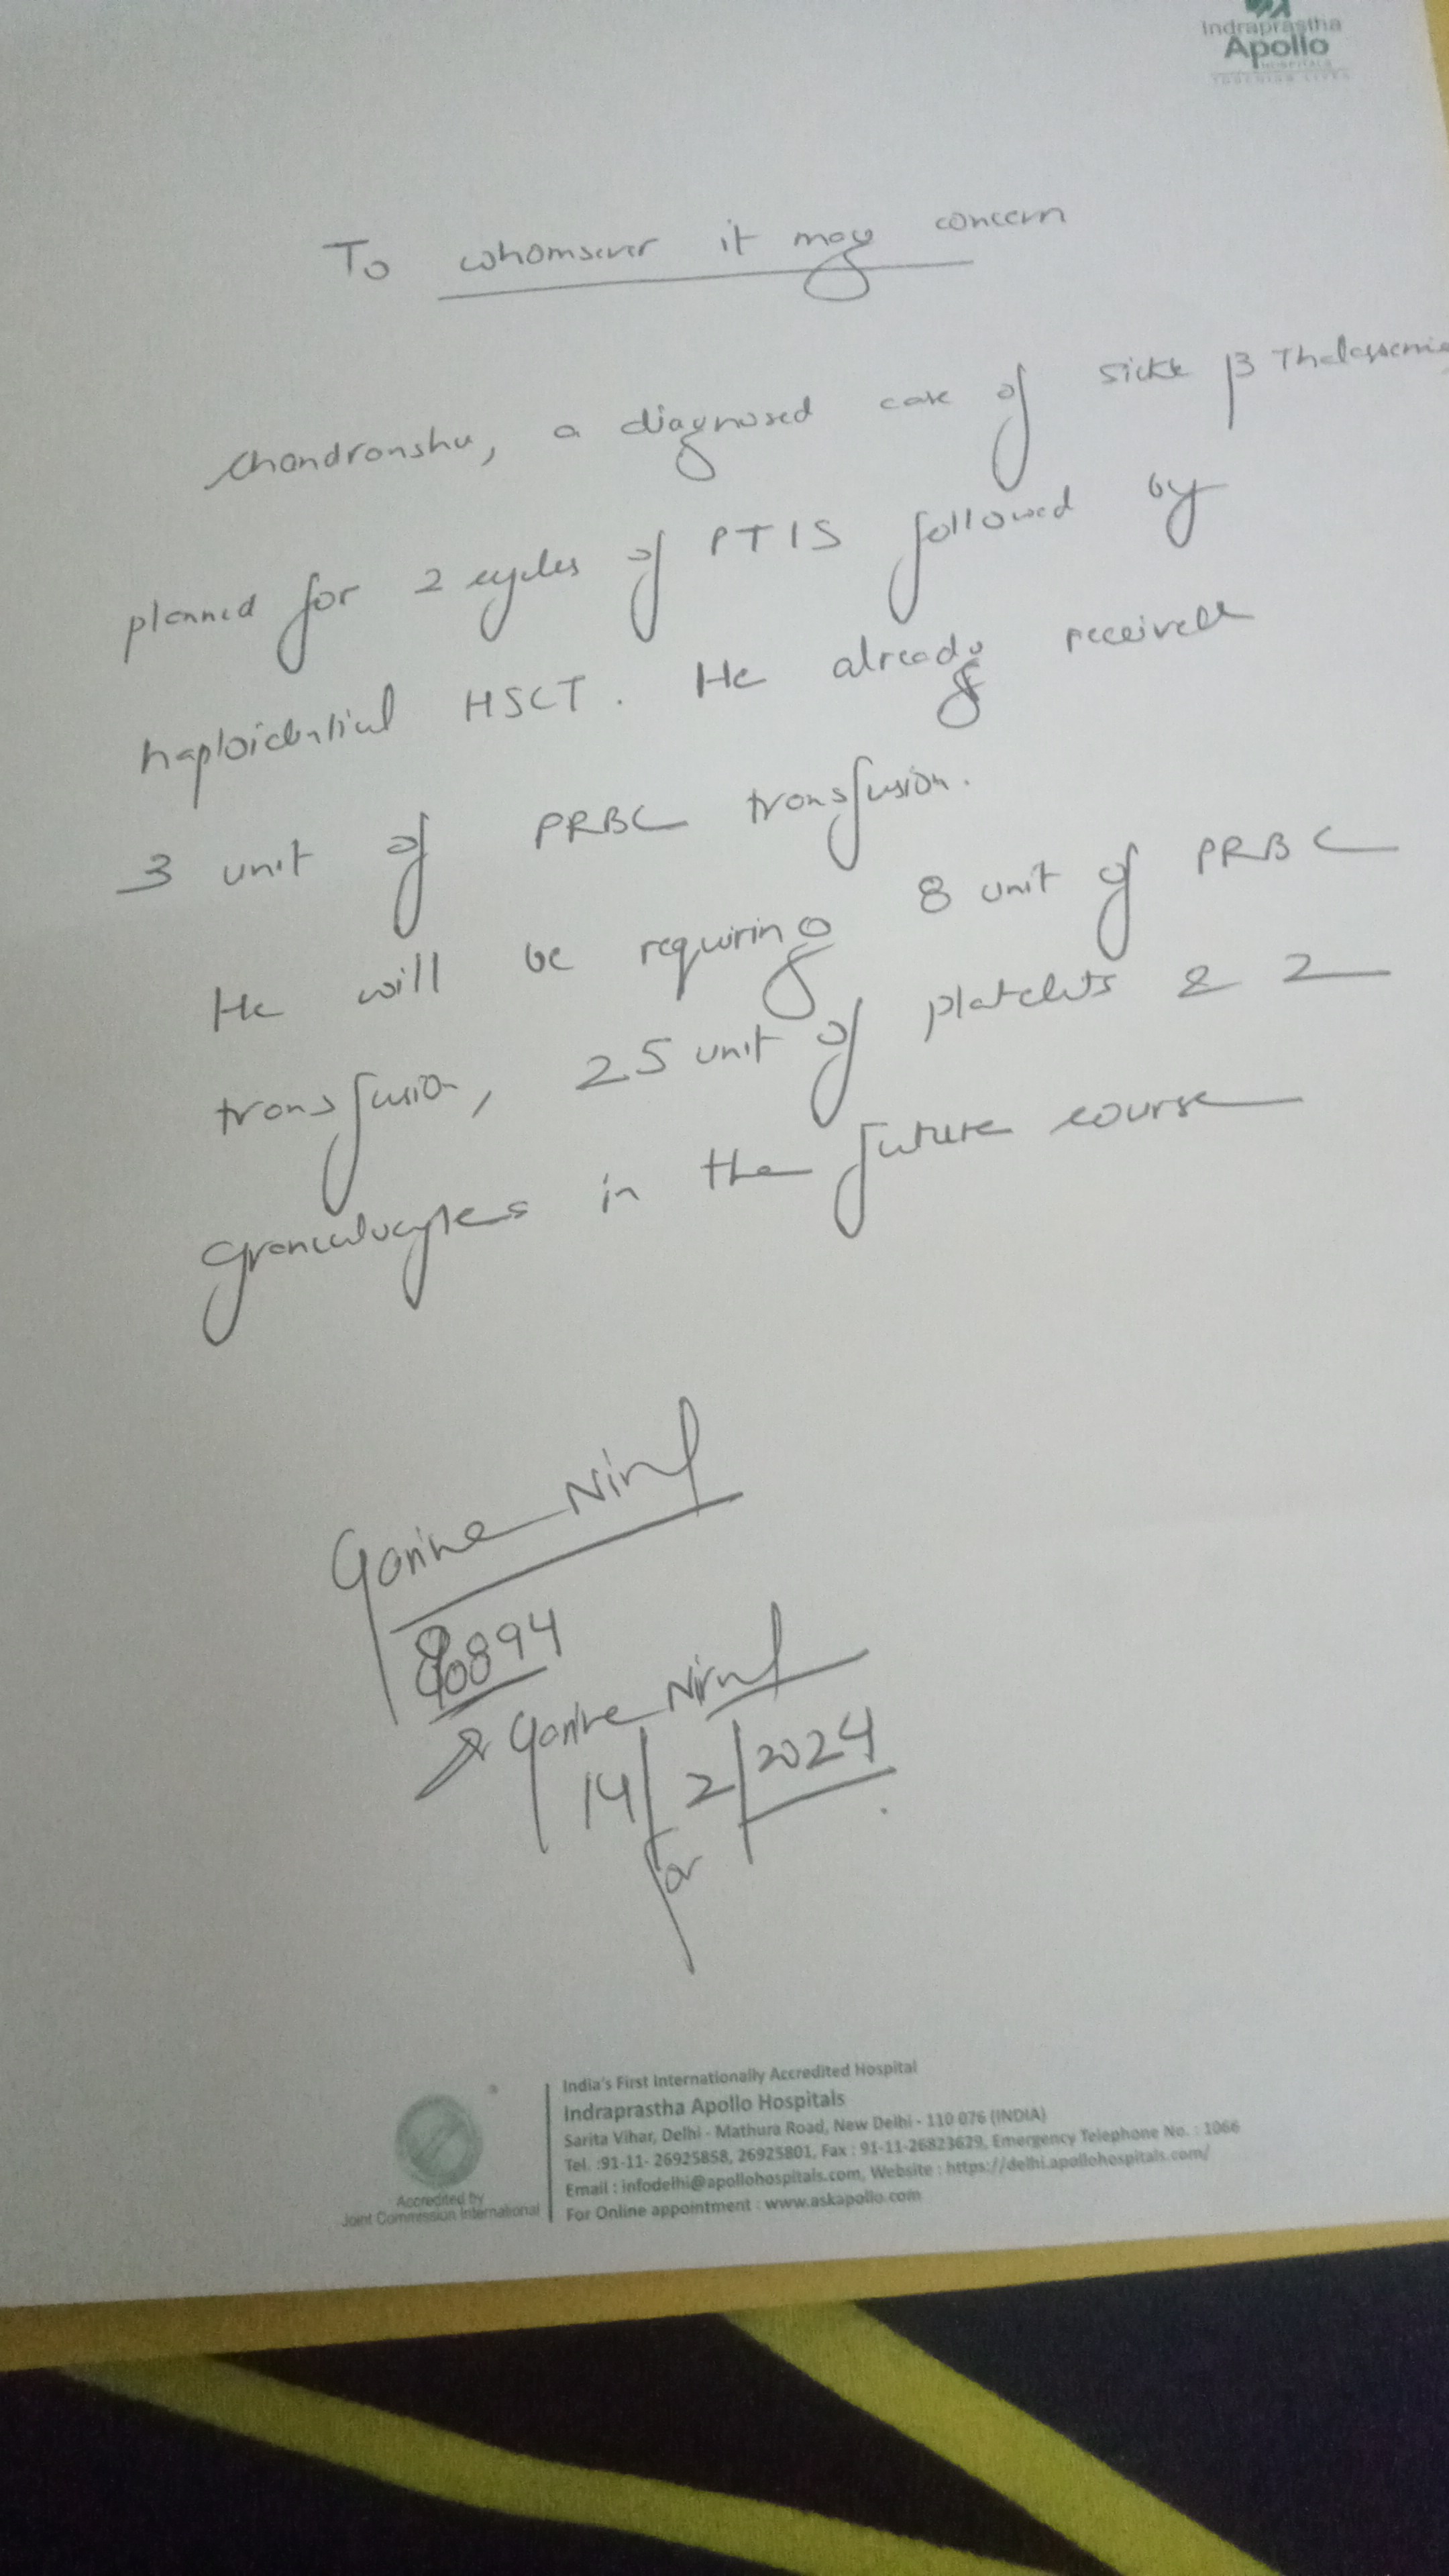 Indraprastha
Apollo
HOSPITALS
TOUCHING LIVES
To whomsever it may concern
Chandranshu, a diagnosed case of sickle β Thalassemia
planned for 2 cycles of PTIS followed by
haploidentical HSCT. He already received
3 unit of PRBC transfusion.
He will be requiring 8 unit of PRBC
transfusion, 25 unit of platelets & 2
granulocytes in the future course
90894
14/2/2024
India's First Internationally Accredited Hospital
Indraprastha Apollo Hospitals
Sarita Vihar, Delhi - Mathura Road, New Delhi - 110 076 (INDIA)
Tel. :91-11- 26925858, 26925801, Fax : 91-11-26823629, Emergency Telephone No. : 1066
Email : infodelhi@apollohospitals.com, Website : https://delhi.apollohospitals.com/
For Online appointment : www.askapollo.com
Accredited by
Joint Commission International